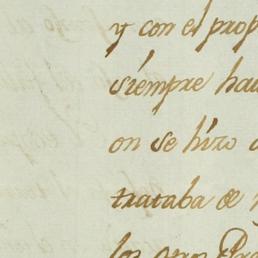 y con el prop
siempre hau
on se hizo
trataba de
los otros